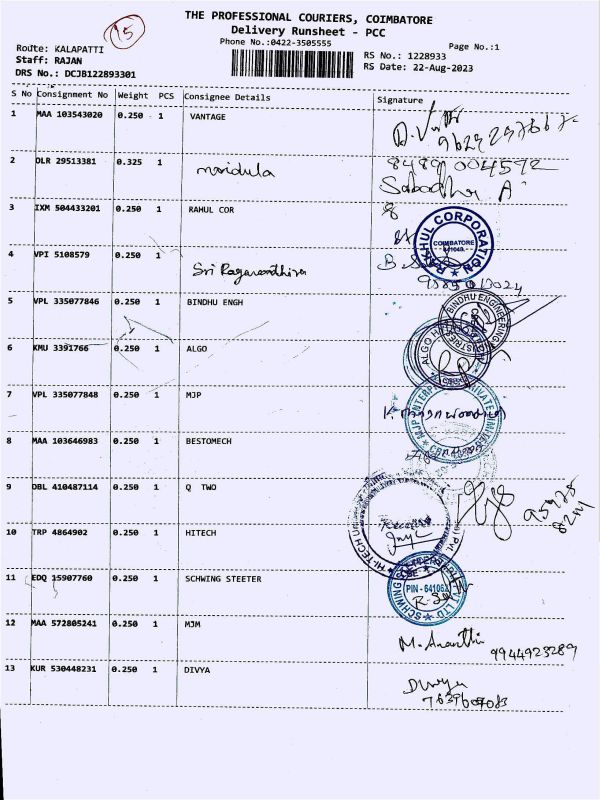 15
THE PROFESSIONAL COURIERS, COIMBATORE
Delivery Runsheet - PCC
Phone No.:0422-3505555
Page No.:1
Route: KALAPATTI
Staff: RAJAN
DRS No.: DCJB122893301
RS No.: 1228933
RS Date: 22-Aug-2023
S No Consignment No Weight PCS Consignee Details Signature
1 MAA 103543020 0.250 1 VANTAGE
2 DLR 29513381 0.325 1 mridula 8489004572
A
3 IXM 504433201 0.250 1 RAHUL COR
RAHUL CORPORATION
COIMBATORE
4 VPI 5108579 0.250 1
5 VPL 335077846 0.250 1 BINDHU ENGH
BINDHU ENGINEERING INDUSTRIES
6 KMU 3391766 0.250 1 ALGO
ALGO
7 VPL 335077848 0.250 1 MJP
MJP ENTERPRISES PRIVATE LIMITED
8 MAA 103646983 0.250 1 BESTOMECH
9 DBL 410487114 0.250 1 Q TWO
10 TRP 4864902 0.250 1 HITECH
HI-TECH
Received
Pvt.
11 EDQ 15907760 0.250 1 SCHWING STEETER
SCHWING
PIN - 641062
LTD
12 MAA 572805241 0.250 1 MJM M. Ananthi
9944923289
13 KUR 530448231 0.250 1 DIVYA Divya